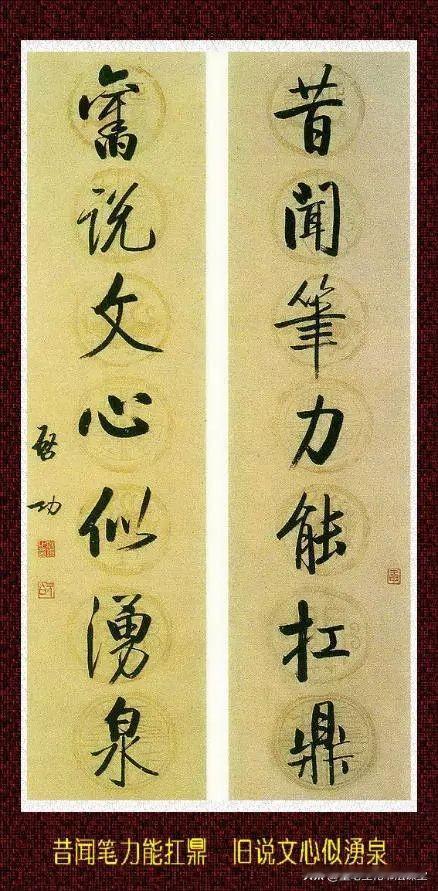 昔闻筆力能扛鼎
舊说文心似湧泉
啓功
昔闻笔力能扛鼎 旧说文心似湧泉